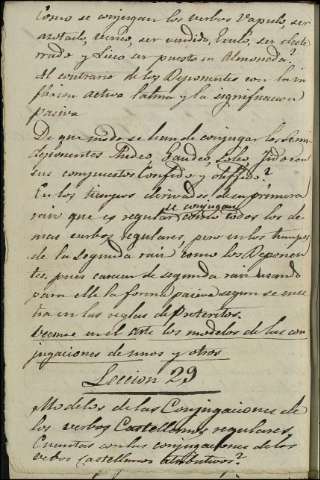 Como se conjugan los verbos Vapulo, ser
azotado, Veneo, ser vendido, Exulo, ser deste
rrado y Liceo ser puesto en Almoneda?
Al contrario de los Deponentes con la in
flexion activa latina y la significacion
pasiva
De que modo se han de conjugar los Semi
deponentes Audeo, Gaudeo, Soleo, Fido con
sus compuestos Confido y diffido?
En los tiempos derivados de su primera
raiz que es regular se conjugan como todos los de
mas verbos regulares, pero en los tiempos
de la segunda raiz como los Deponen
tes, pues carecen de segunda raiz usando
para ella la forma pasiva segun se mues
tra en las reglas de Preteritos.
Veanse en el Arte los modelos de las con
jugaciones de unos y otros
Leccion 29
Modelos de las Conjugaciones de
los verbos Castellanos regulares.
Cuantas son las conjugaciones de los
verbos castellanos atributivos?